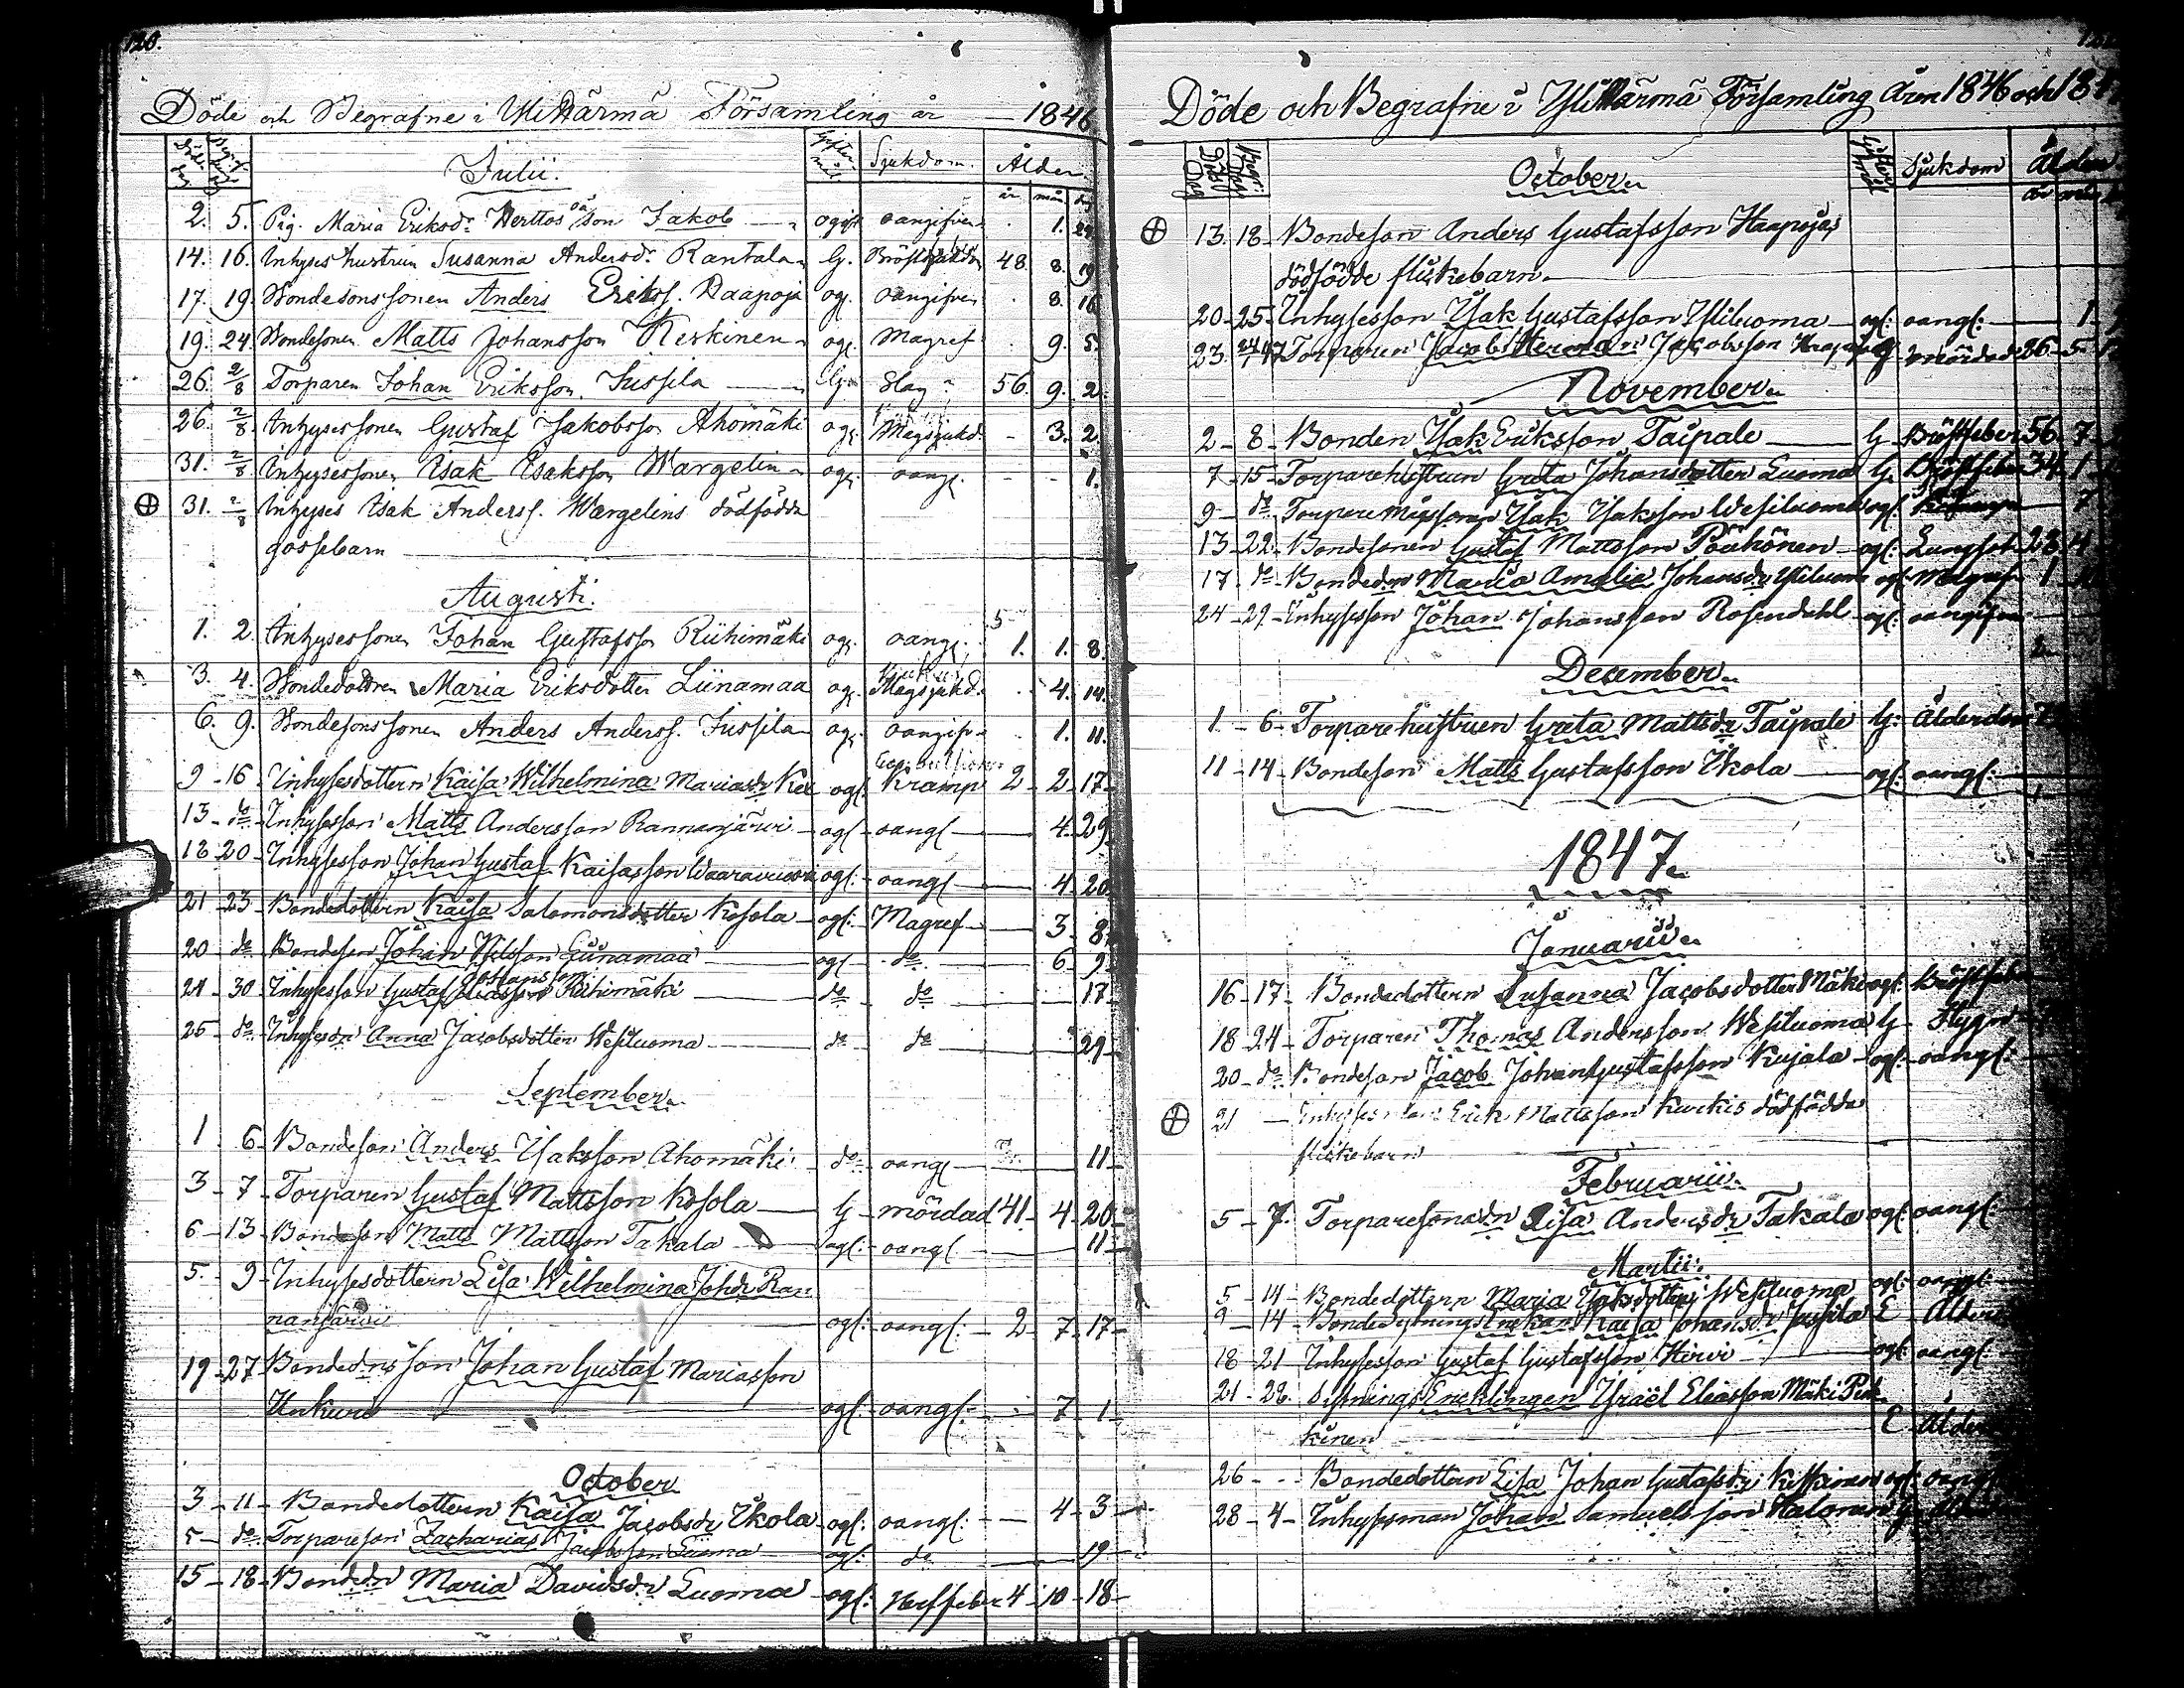 120.
Döde och Begrafne i Ylihärmä Församling år — 1846
Julii.
Giftermål Sjukdom. Ålder
år mån dag
2. 5. Pig. Maria Eriksdr Herttos oä son Jakob — ogift oangifven . 1. 24
14. 16. Inhyses hustrun Susanna Andersdr Rantala G. Bröstsjukdom 48. 8. 19
17. 19 Bondesonssonen Anders Erikss. Haapoja og. oangifven . 8. 16
19. 24. Bondesonen Matts Johansson Keskinen og. Magref . 9. 5.
26. 2/8 Torparen Johan Eriksson Jussila — G. Slag 56. 9. 2.
26. 2/8. Inhysessonen Gustaf Jakobsson Ahomäki og. Magsjukd. - 3. 2.
31. 2/8 Inhysessonen Isak Isaksson Wargelin og. oang. - - 1.
31. 2/8 Inhyses Isak Anderss. Wargelins dödfödda
gossebarn
Augusti.
1. 2. Inhysessonen Johan Gustafsson Riihimäki og. oang. 1. 1. 8.
3. 4. Bondedottren Maria Eriksdotter Liinamaa og. Magsjukd. . 4. 14.
6. 9. Bondesonssonen Anders Anderss. Jussila og. oangif. . 1. 11.
9 - 16 - Inhysesdottern Kaisa Wilhelmina Mariasdr ogl. Kramp 2 - 2 - 17 -
13 - do - Inhysesson Matts Andersson Rannanjärvi - ogl - oangl — 4 - 29
18 20 - Inhysesson Johan Gustaf Kaisasson ogl: - oangl — 4 - 20
21 - 23 - Bondedottern Kaisa Salomonsdotter Kosola - ogl: - Magref — 3 - 8
20 do - Bondeson Johan Nilsson Liinamaa — ogl - do — 6 - 9
24 - 30 - Inhysesson Gustaf Johansson Riihimäki — do - do — 17 -
25 - do - Inhysesdr Anna Jacobsdotter Wesiluoma — do - do — 29 -
September
1 6 - Bondeson Anders Isaksson Ahomäki - do - oangl — 11 -
3 - 7 - Torparen Gustaf Mattsson Kosola — G - mördad 41 - 4 - 20 -
6 - 13 - Bondeson Matts Mattsson Takala — ogl: - oangl — 11 -
5. - 9 - Inhysesdottern Lisa Wilhelmina Johdr Ran
nanjärvi — ogl: - oangl: - 2 - 7 - 17 -
19 - 27 Bondedrs son Johan Gustaf Mariasson
Unkuri — ogl: - oangl: - - 7 - 1 -
October
3 - 11 - Bondedottern Kaisa Jacobsdr Ikola - ogl: oangl: — 4 - 3 -
5 - do - Torpareson Zacharias Jacobsson Luoma - ogl: do — 19 -
15 - 18 - Bondedr Maria Davidsdr Luoma - ogl: 4 - 10 - 18 -
Döde och Begrafne i Ylihärmä Församling Åren 1846 och
Död Dag Begr: Dag
October
Giftermål Sjukdom Ålder
år mån
13. 18 - Bondeson Anders Gustafsson Haapojas
dödfödde flickebarn —
20 - 25 - Inhysesson Isak Gustafsson Yliluoma - ogl: oangl: — 1 -
23. Torparen Jacob Herman Jacobsson G mördad 36 - 5
November
2 - 8 - Bonden Isak Eriksson Taipale — G - Bröstfeber 56 7
7 - 15 - Torparehustrun Greta Johansdotter Luoma G. Bröstfeber 34 - 1
9 - do Torparemågsonen Isak Isaksson Wesiluoma ogl: 7
13 - 22 - Bondesonen Gustaf Mattsson Pöuhönen - ogl: Lungsot 28 4
17 - do - Bondedr Maria Amalia Johansdr Yliluoma ogl - Magref 1
24 - 29 - Inhysesson Johan Johansson Rosendahl - ogl: oangifven
December
1 - 6 - Torparehustruen Greta Mattsdr Taipale G: Ålderdom
11 - 14 - Bondeson Matts Gustafsson Ikola — ogl: oangl:
1847
Januarii
16 - 17 - Bondedottern Susanna Jacobsdotter Mäki ogl: Bröstfeber
18 24 - Torparen Thomas Andersson Wesiluoma G - Flygn
20 - do Bondeson Jacob Johan Gustafsson Kujala - ogl: oangl:
21 — Erik Mattsson Kurkis dödfödda
flickebarn
Februarii
5 - 7 - Torparesonsdr Lisa Andersdr Takala ogl: oangl:
Martii:
5 - 14 - Bondedottern Maria Isaksdotter Wesiluoma ogl: oangl:
9 - 14 - Enekan Kaisa Johansdr Jussila E Ålder
18 - 21 Inhysesson Gustaf Gustafsson Hirvi - ogl: oangl:
21 - 28. Sytnings Encklingen Israël Eliasson Mäki
kinen — E Ålder
26 - - Bondedottern Lisa Johan Gustafsdr Keskinen ogl:
28 - 4 - Inhysesman Johan Samuelsson